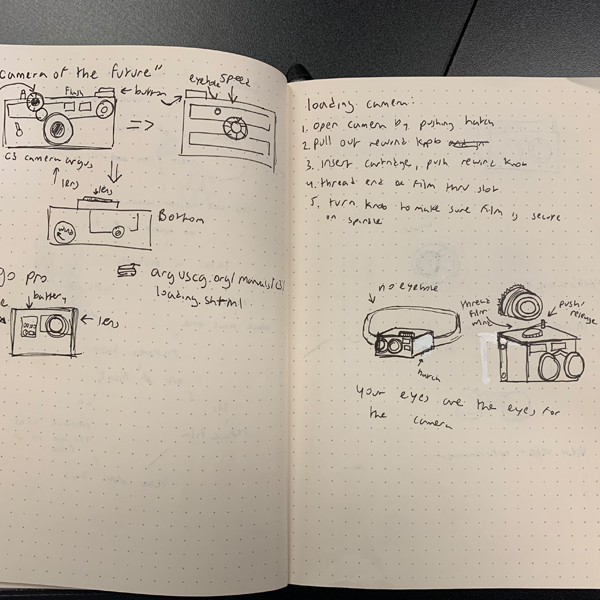 camera of the future"
A
Flash
button
eyehole
speed
B
=>
C3 camera argus
lens
lens
Bottom
go pro
battery
lens
arguscg.org/manuals/c3/
loading.shtml
loading camera:
1. open camera by pushing hatch
2. pull out rewind knob
3. insert cartridge, push rewind knob
4. thread end of film thru slot
5. turn knob to make sure film is secure
on spindle
no eyehole
hatch
thread
film
push/
release
your eyes are the eyes for
the camera